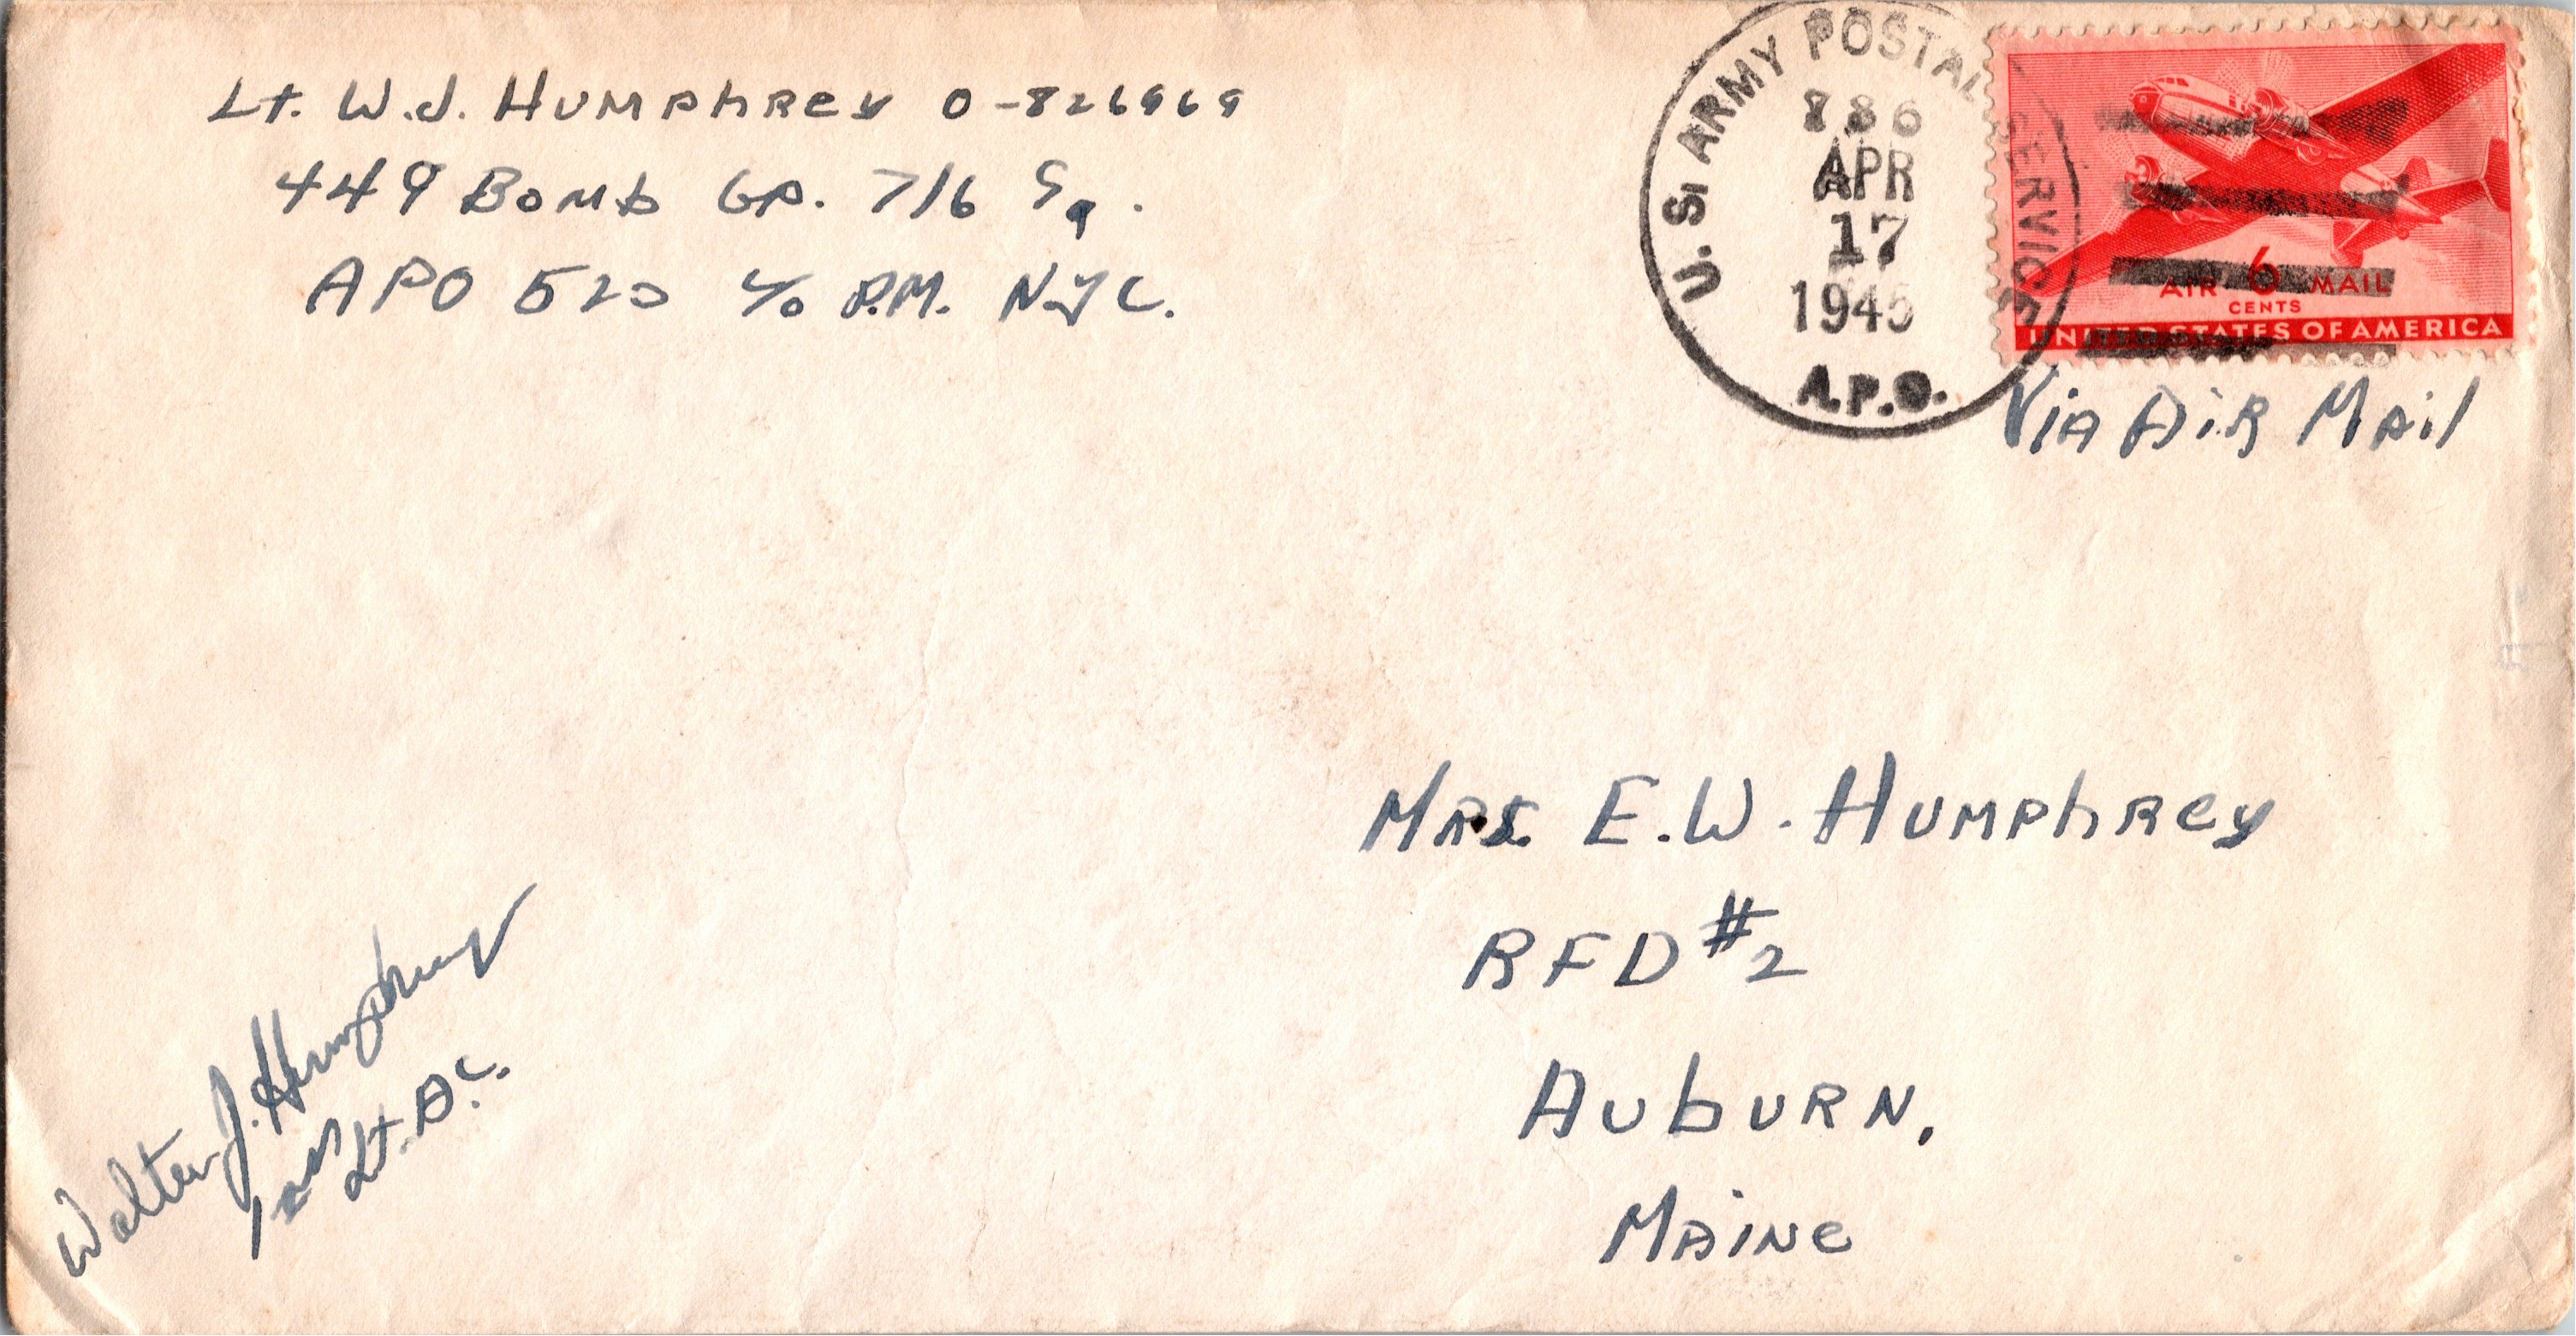 Lt. W.J. HUMPhRey O-826969
449 Bomb GP. 716 Sq.
APO 520 c/o P.M. NYC.
U.S. ARMY POSTAL SERVICE
886
APR
17
1945
A.P.O.
6
AIR MAIL
CENTS
UNITED STATES OF AMERICA
Via Air Mail
MRS. E.W. HUMPhRey
RFD #2
AubURN,
MAiNe
Walter J. Humphrey
Lt. A.C.